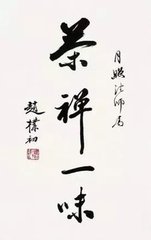 月照法师属
茶禅一味
赵樸初